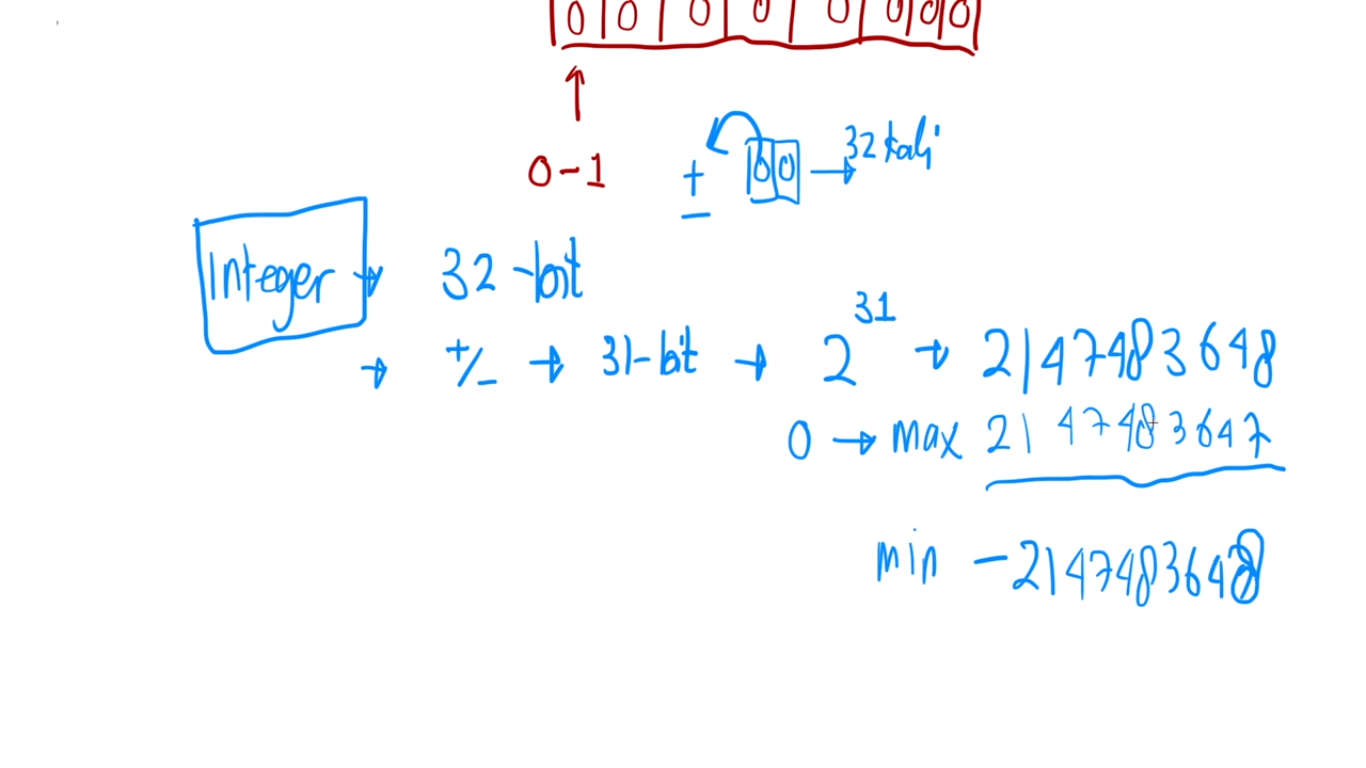 0 0 0 0 0 0 0 0
0-1
+
-
00 → 32 kali
Integer → 32-bit
→ +/- → 31-bit → 2^31 → 2147483648
0 → max 2147483647
min -2147483648